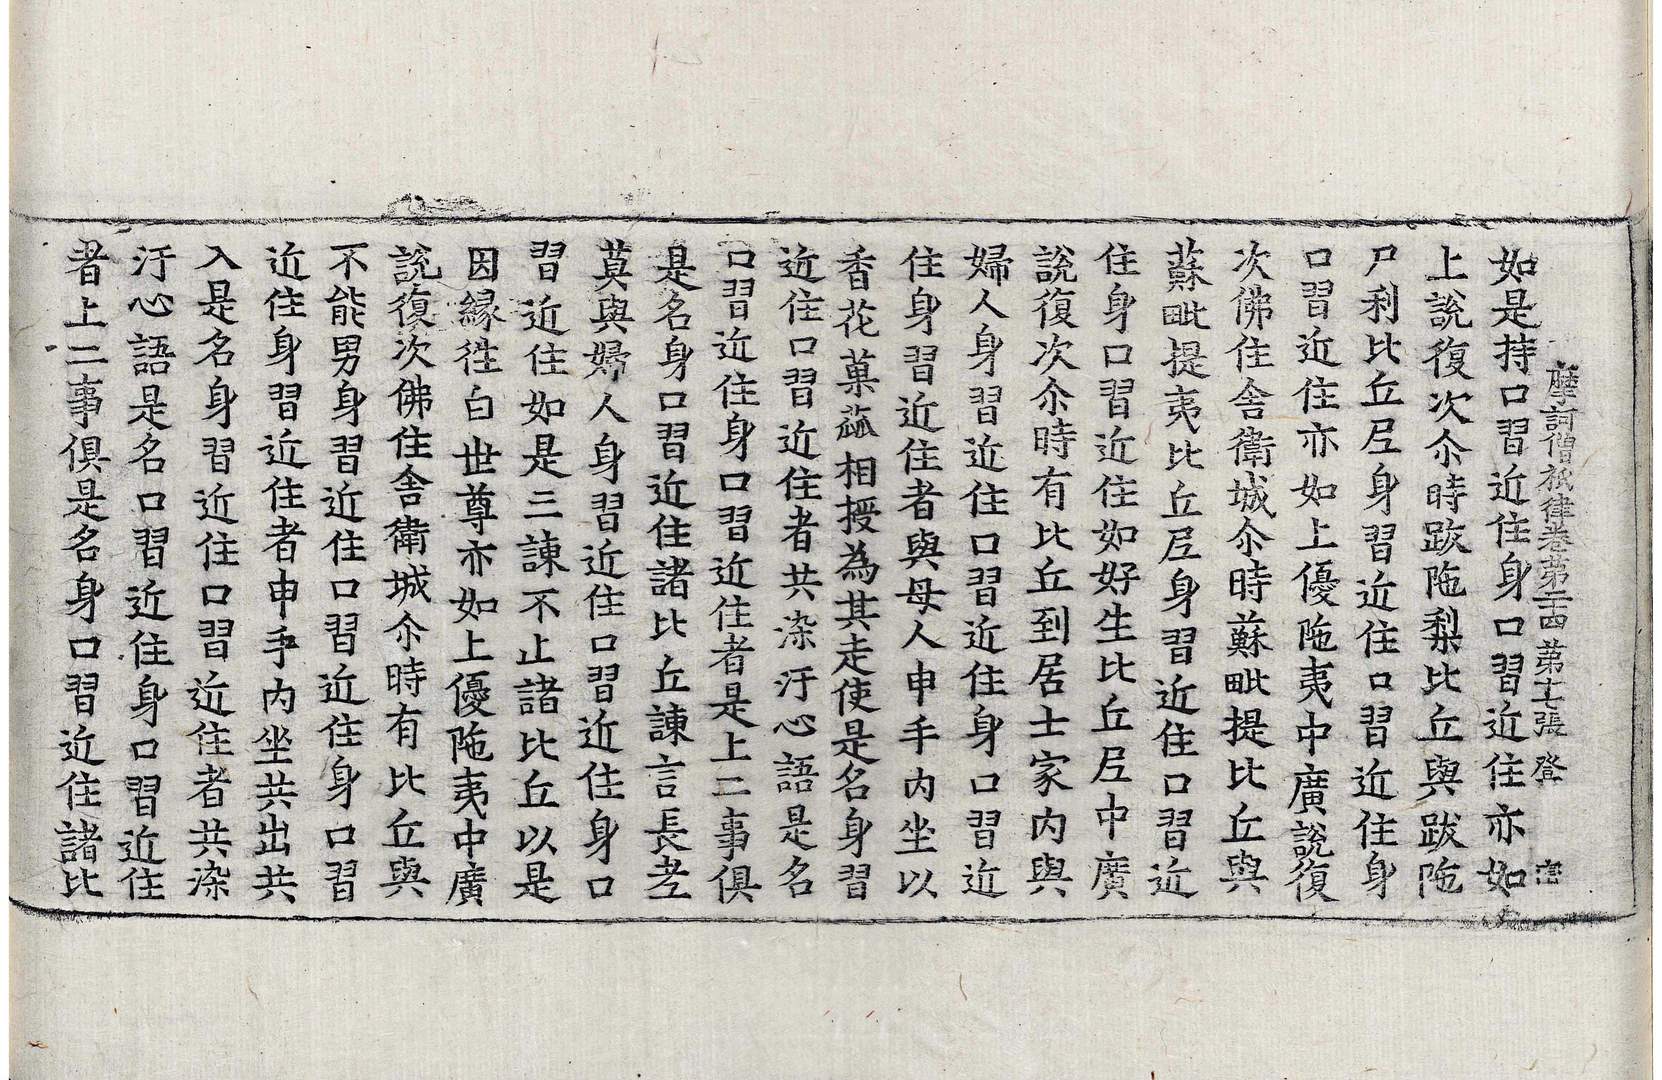 摩訶僧祇律卷第二十四 第十七張 登
如是持口習近住身口習近住亦如
上說復次尒時跋陁梨比丘與跋陁
尸利比丘𡰱身習近住口習近住身
口習近住亦如上優陁夷中廣說復
次佛住舍衛城尒時蘇毗提比丘與
蘇毗提夷比丘𡰱身習近住口習近
住身口習近住如好生比丘𡰱中廣
說復次尒時有比丘到居士家內與
婦人身習近住口習近住身口習近
住身習近住者與母人申手內坐以
香花菓蓏相授為其走使是名身習
近住口習近住者共染汙心語是名
口習近住身口習近住者是上二事俱
是名身口習近住諸比丘諫言長老
莫與婦人身習近住口習近住身口
習近住如是三諫不止諸比丘以是
因緣徃白世尊亦如上優陁夷中廣
說復次佛住舍衛城尒時有比丘與
不能男身習近住口習近住身口習
近住身習近住者申手內坐共出共
入是名身習近住口習近住者共染
汙心語是名口習近住身口習近住
者上二事俱是名身口習近住諸比